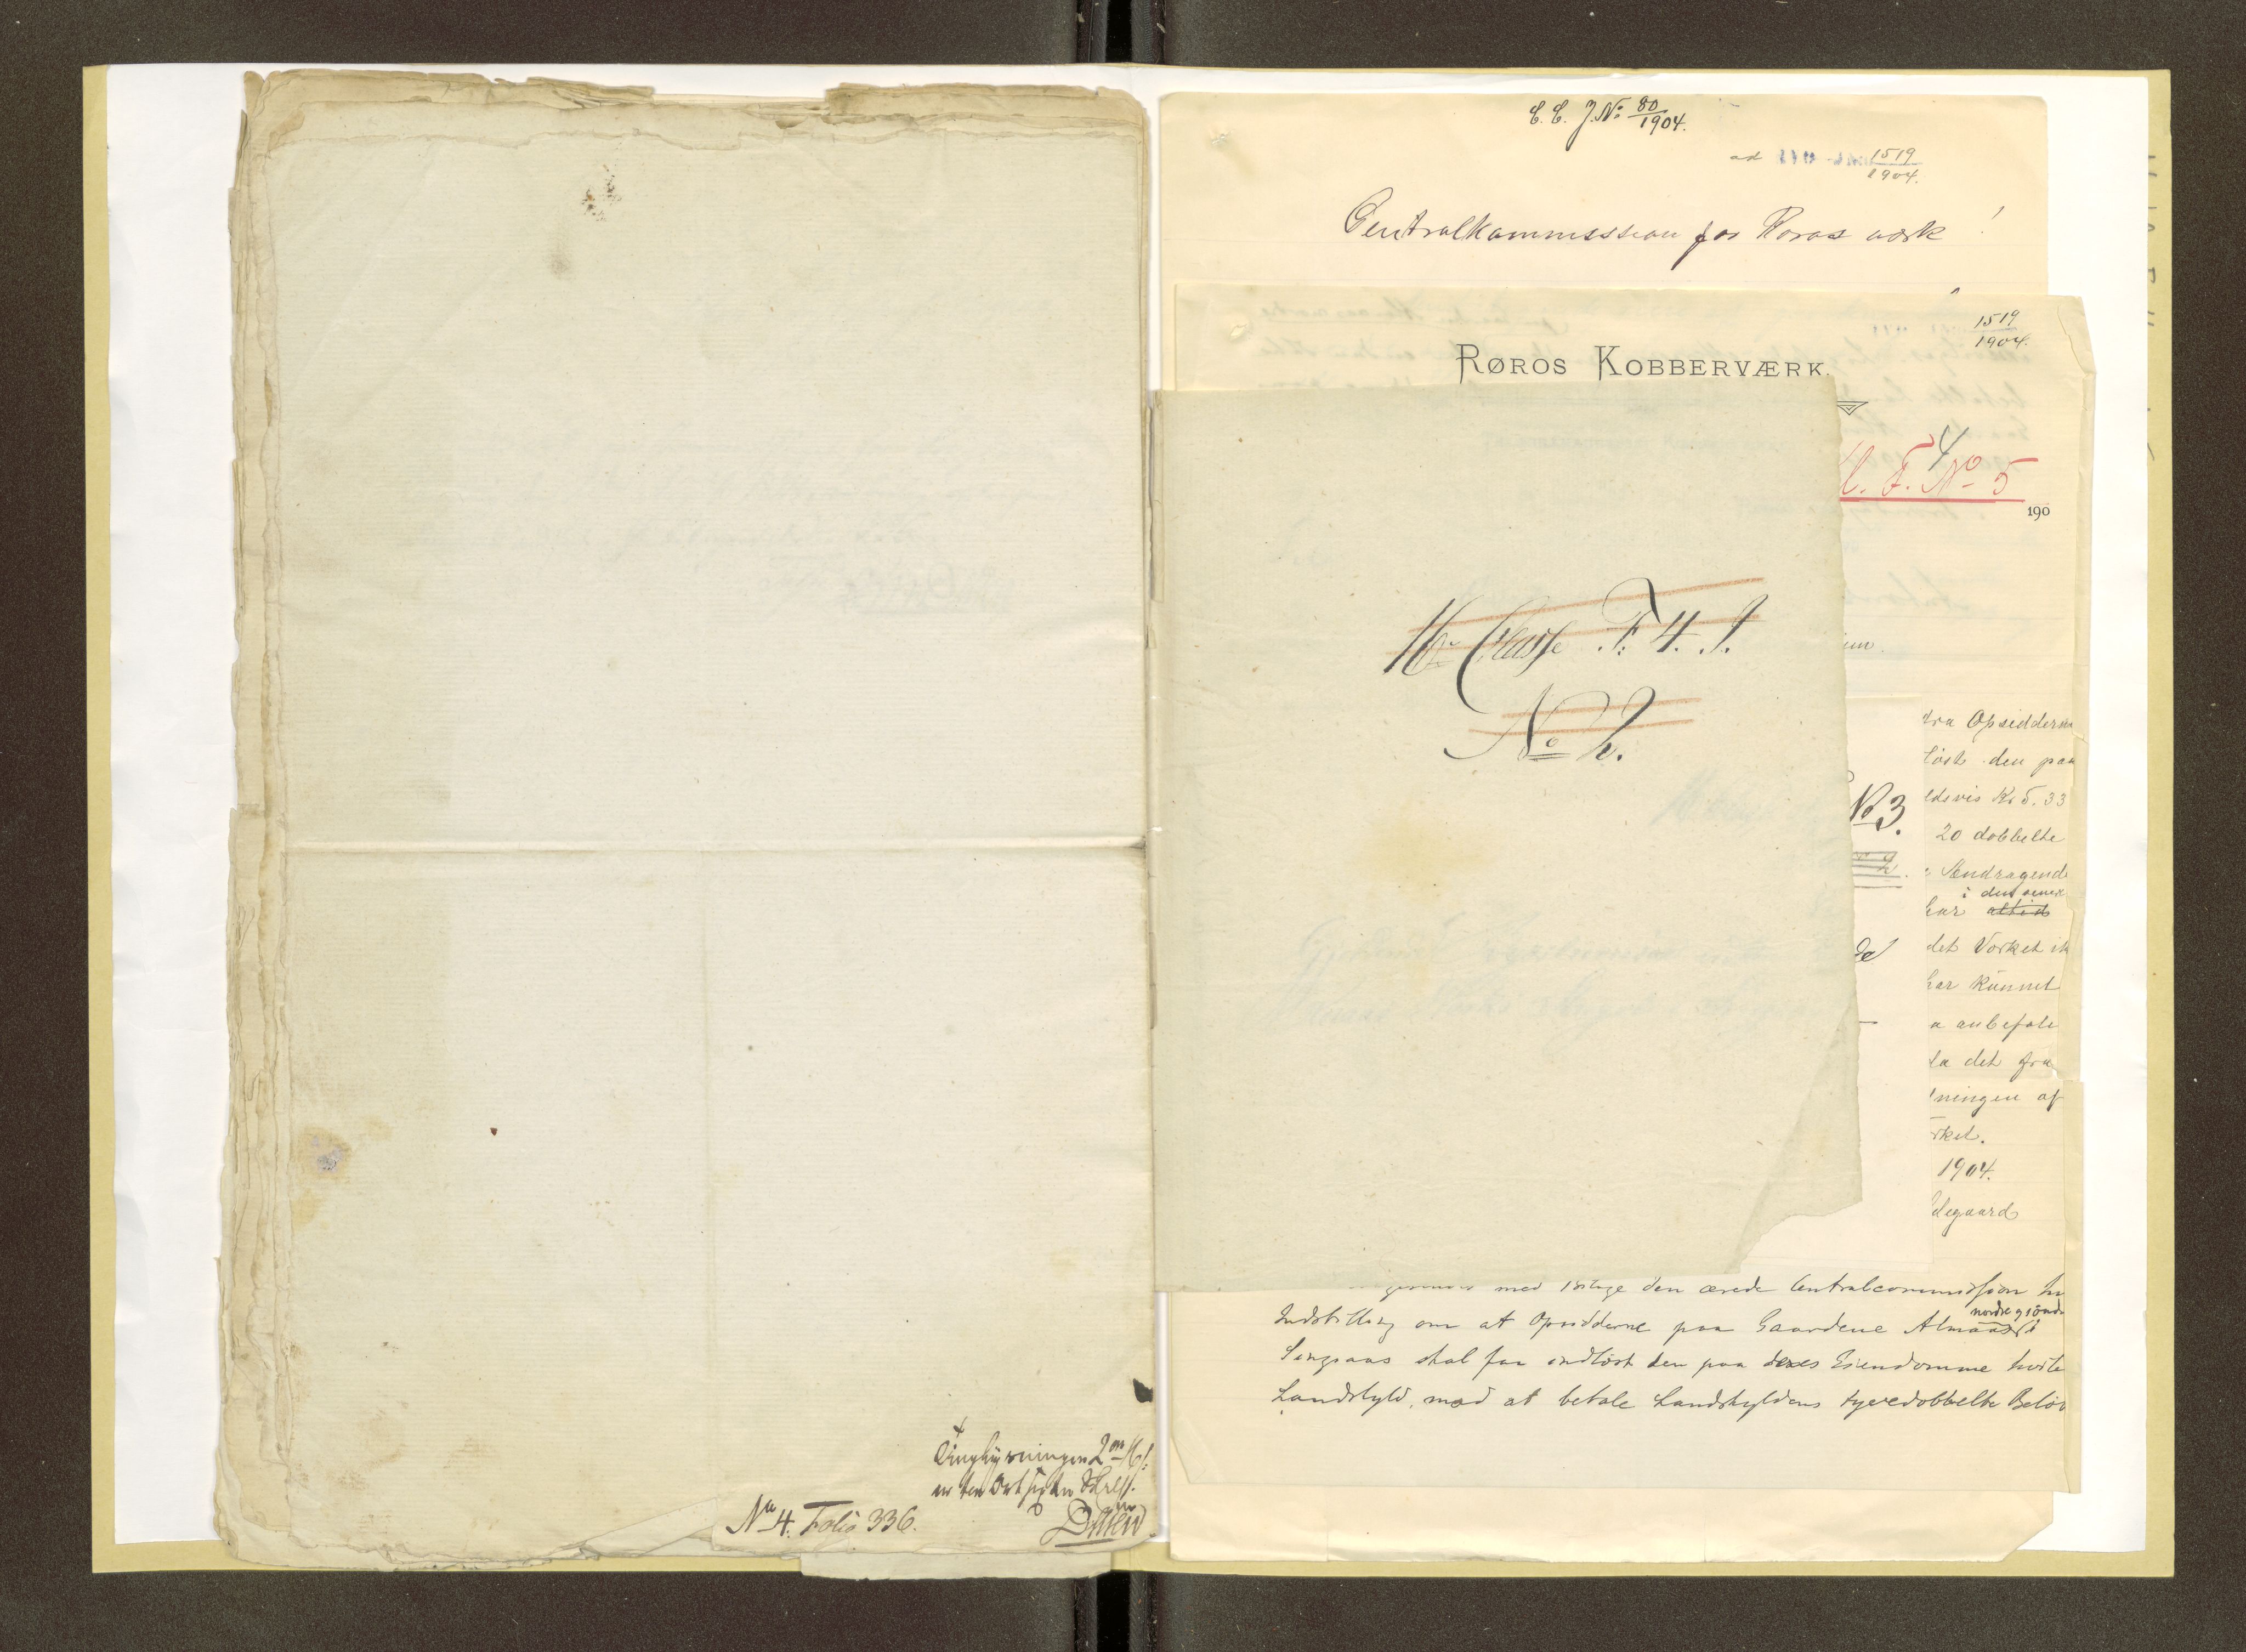 No 4. Folio 336.
C. C. J. No 80/1904.
ad 1519/1904.
Centralkommission for Røros værk!
1519/1904.
RØROS KOBBERVÆRK.
F. No 5
4
190
16de Classe F: 4. J.
No 2.
No 3.
2.
fra Opsidderne
løst den paa
eldsvis Kr 5.33
20 dobbelte
Andragende
i den senere
har altid
det Værket ik
har kunnet
a anbefale
da det fra
ningen af
rket.
1904.
degaard
med Bilage den ærede Centralcommission
Indstilling om at Opsidderne paa Gaardene Almaas
nordre og søndre
Singsaas skal faa indløst den paa deres Eiendomme hvile
Landskyld, mod at betale Landskyldens tyvedobbelte Beløb